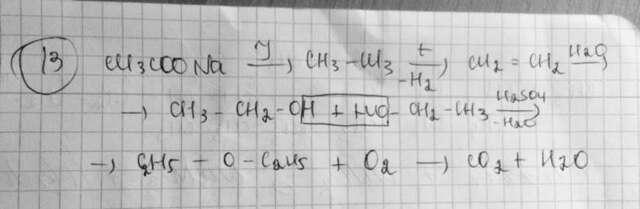 13 CH3COONa —y→ CH3-CH3 —t, -H2→ CH2=CH2 —H2O→
→ CH3-CH2-OH + HO-CH2-CH3 —H2SO4, -H2O→
→ C2H5-O-C2H5 + O2 → CO2 + H2O